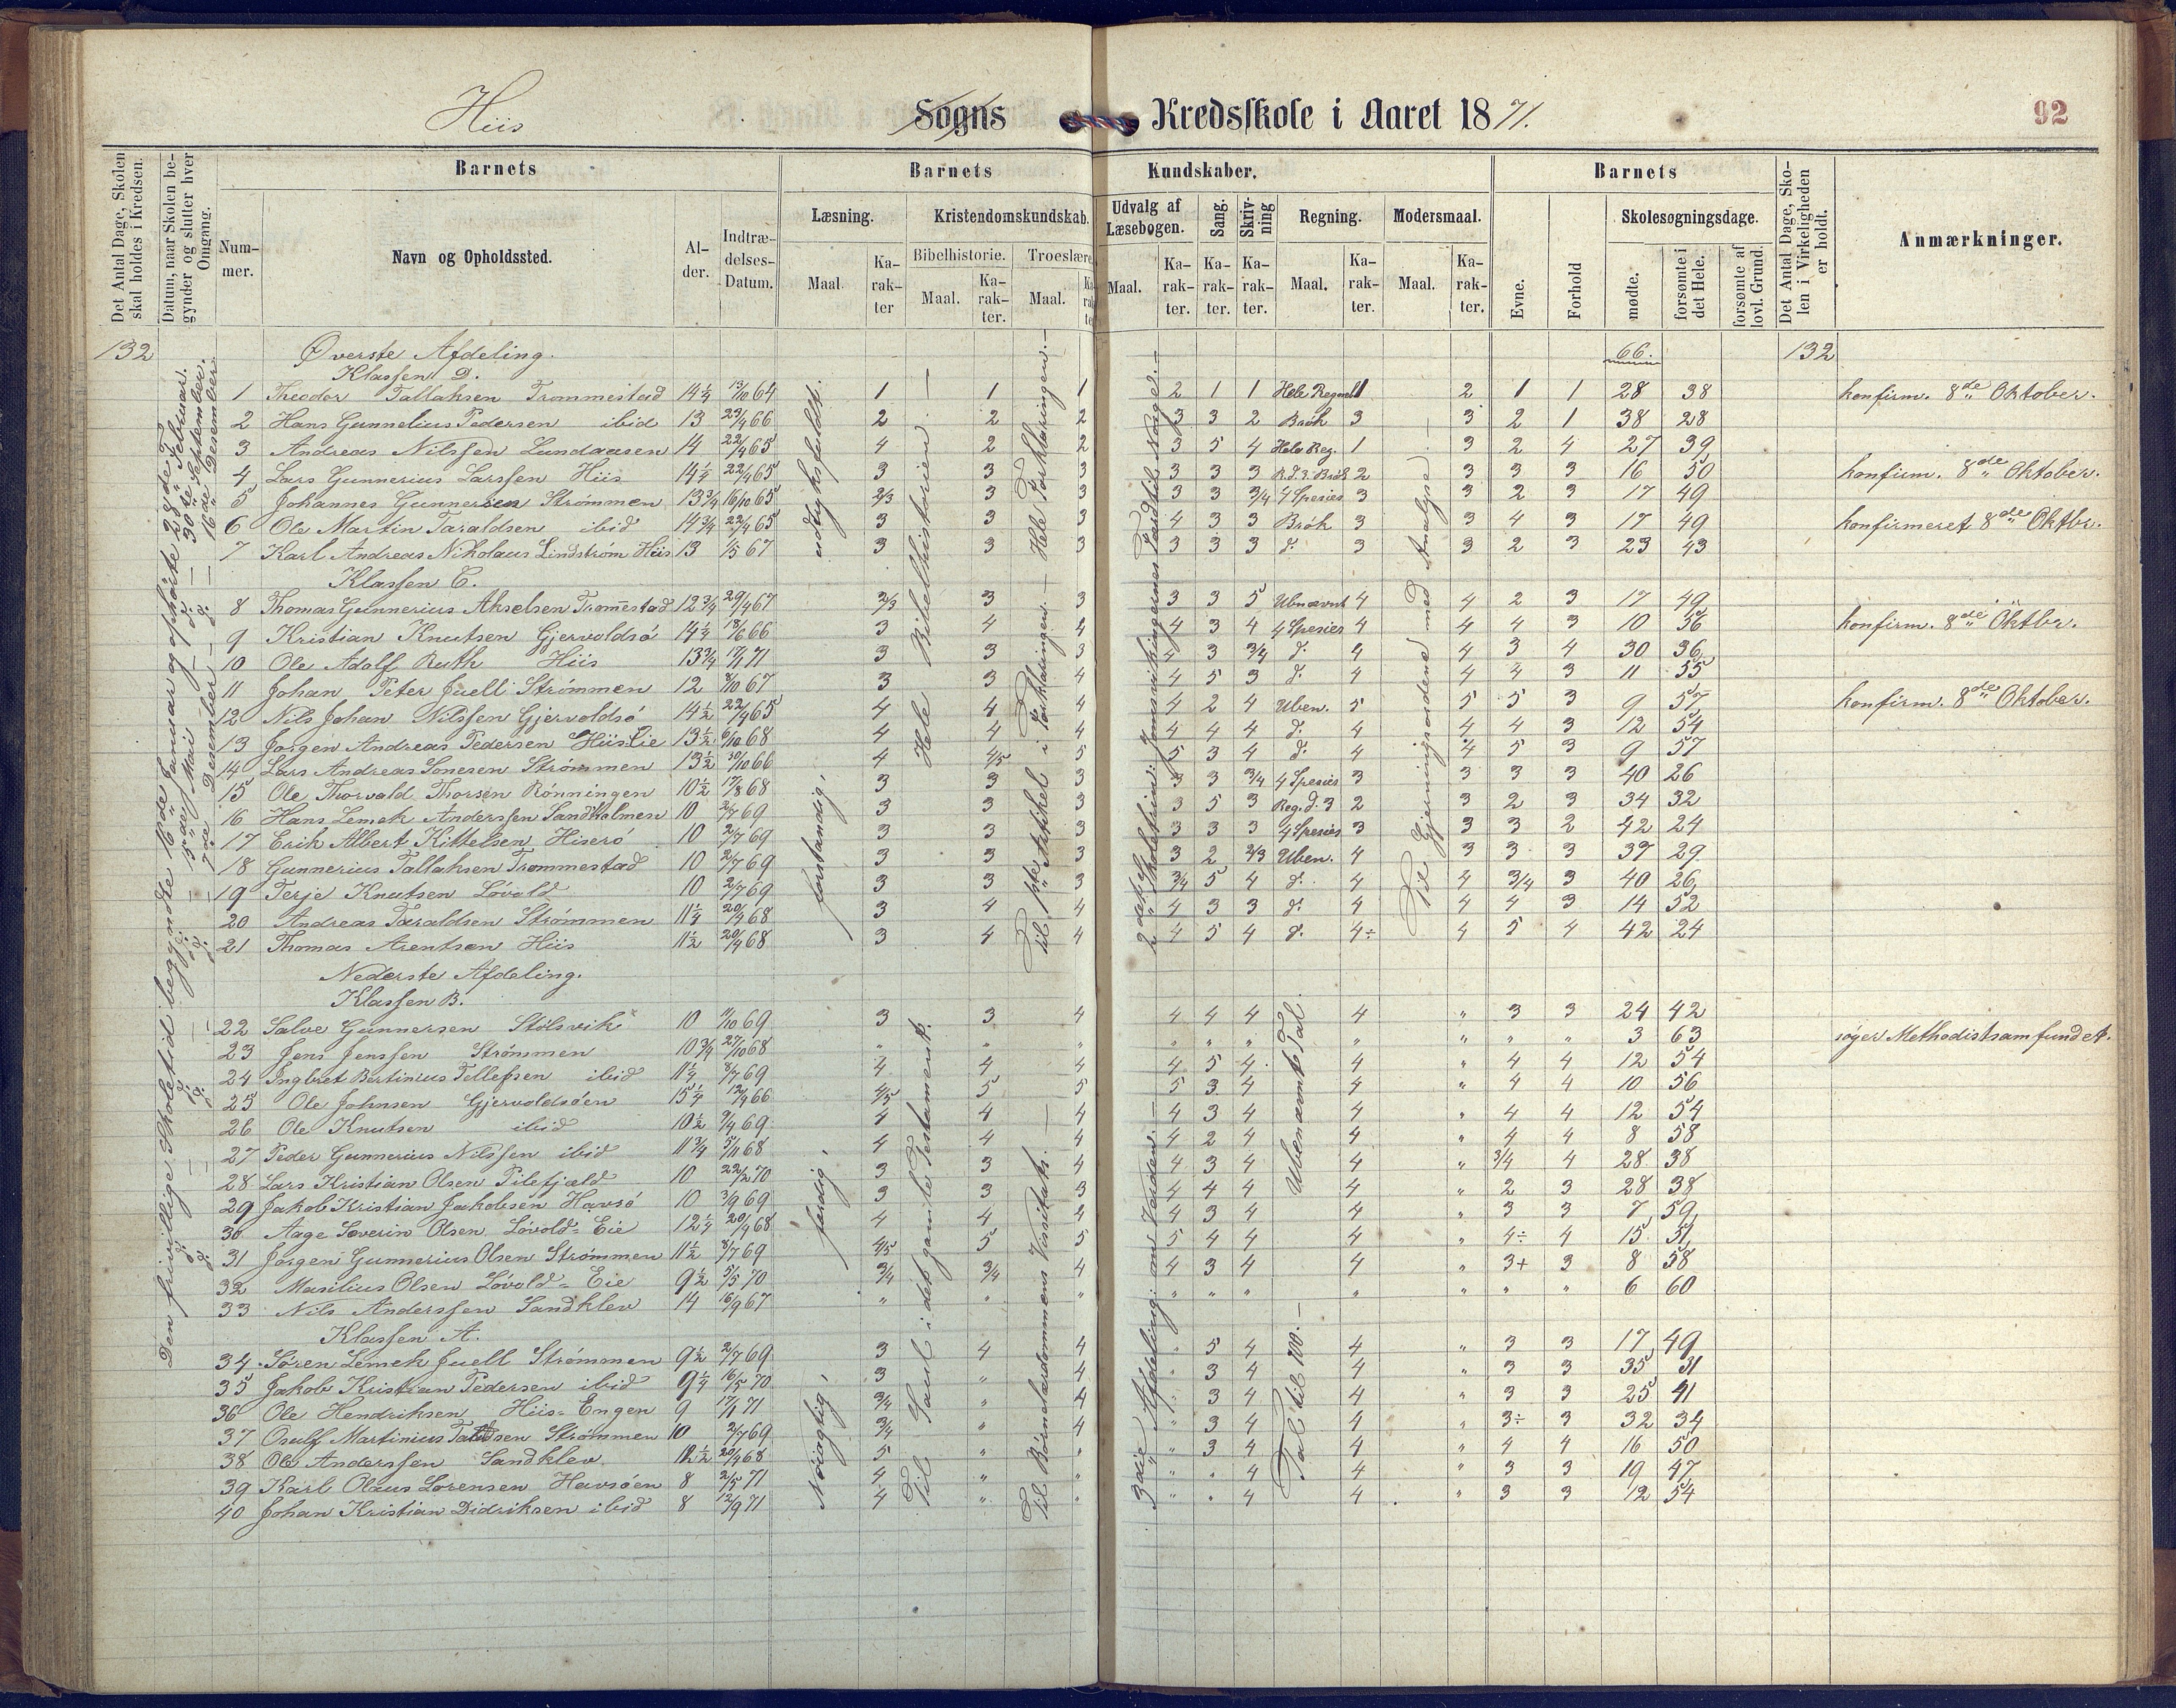 Hiis Sogns Kredsskole i Aaret 1871. 92
Det Antal Dage, Skolen skal holdes i Kredsen.
Datum, naar Skolen begynder og slutter hver Omgang.
Barnets
Nummer.
Navn og Opholdssted.
Alder.
Indtrædelses-Datum.
Barnets Kundskaber.
Læsning. Kristendomskundskab. Udvalg af Læsebogen. Sang. Skrivning Regning. Modersmaal.
Maal. Karakter Bibelhistorie. Maal. Karakter. Troeslære Maal.
Maal. Karakter. Karakter. Karakter. Maal. Karakter. Maal. Karakter.
Barnets
Evne. Forhold Skolesøgningsdage. mødte. forsømte i det Hele. forsømte af lovl. Grund.
Det Antal Dage, Skolen i Virkeligheden er holdt.
Anmærkninger.
132 Øverste Afdeling. 66. 132
Klassen D.
1 Theodor Tallaksen Trommestad 14 1/4 13/10 64 1 1 1 2 1 1 Hele Regneb. 1 2 1 1 28 38 konfirm. 8de Oktober.
2 Hans Gunnelius Pedersen ibid 13 23/4 66 2 2 2 3 3 2 Brøk 3 3 2 1 38 28
3 Andreas Nilssen Lundaasen 14 22/4 65 4 2 2 3 5 4 Hele Reg. 1 3 2 4 27 39
4 Lars Gunnerius Larssen Hiis 14 1/4 22/4 65 3 3 3 3 3 3 R.d.3. Brøk 2 3 3 3 16 50 konfirm. 8de Oktober.
5 Johannes Gunnersen Strømmen 13 3/4 16/10 65 2/3 3 3 3 3 3/4 4 Spesies 3 3 2 3 17 49
6 Ole Martin Taraldsen ibid 14 3/4 22/4 65 3 3 3 4 3 3 Brøk 3 3 4 3 17 49 konfirmeret 8de Oktbr.
7 Karl Andreas Nikolaus Lindstrøm Hiis 13 1/5 67 3 3 3 3 3 3 d. 3 3 2 3 23 43
Klassen C.
8 Thomas Gunnerius Akselsen Trom̄estad 12 3/4 29/4 67 2/3 3 3 3 3 5 Ubnævnt 4 4 2 3 17 49
9 Kristian Knutsen Gjervoldsø 14 1/4 18/6 66 3 4 4 4 3 4 4 Spesies 4 4 4 3 10 56 konfirm. 8de Oktbr.
10 Ole Adolf Ruth Hiis 13 3/4 17/1 71 3 3 3 4 3 3/4 d. 4 4 3 4 30 36
11 Johan Peter Juell Strømmen 12 8/10 67 3 3 4 4 5 3 d. 4 4 4 3 11 55
12 Nils Johan Nilssen Gjervoldsø 14 1/2 22/4 65 4 4 4 4 2 4 Uben. 5 5 5 3 9 57 konfirm. 8de Oktober.
13 Jørgen Andreas Pedersen Hiis Eie 13 1/2 6/10 68 4 4 4 4 4 4 d. 4 4 4 3 12 54
14 Lars Andreas Sonesen Strømmen 13 1/2 30/10 66 4 4/5 5 5 3 4 d. 4 4 5 3 9 57
15 Ole Thorvald Thorsen Rønningen 10 1/2 17/8 68 3 3 3 3 3 3/4 4 Spesies 3 3 3 3 40 26
16 Hans Lemek Anderssen Sandholmen 10 2/7 69 3 3 3 3 5 3 Reg. d. 3 2 3 2 3 34 32
17 Erik Albert Kittelsen Hiserø 10 2/7 69 3 3 3 3 3 3 4 Spesies 3 3 3 2 42 24
18 Gunnerius Tallaksen Trommestad 10 2/7 69 3 3 3 3 2 2/3 Uben. 4 3 3 3 37 29
19 Terje Knutsen Løvold 10 2/7 69 3 3 3 3/4 5 4 d. 4 4 3/4 3 40 26
20 Andreas Taraldsen Strømmen 11 1/4 20/4 68 3 4 4 4 3 3 d. 4 4 4 3 14 52
21 Thomas Arentsen Hiis 11 1/2 20/4 68 3 4 4 4 5 4 d. 4÷ 4 5 4 42 24
Nederste Afdeling.
Klassen B.
22 Salve Gunnersen Stølsvik 10 11/10 69 3 3 4 4 4 4 4 " 3 3 24 42
23 Jens Jenssen Strømmen 10 3/4 27/10 68 " " " " " " " " " " 3 63 søger Methodistsamfundet.
24 Ingbret Bertinius Tellefsen ibid 11 1/4 8/7 69 4 4 4 4 5 4 4 " 4 4 12 54
25 Ole Johnsen Gjervoldsøen 15 1/4 12/4 66 4/5 5 5 5 3 4 4 " 4 4 10 56
26 Ole Knutsen ibid 10 1/2 9/4 69 4 4 4 4 3 4 4 " 4 4 12 54
27 Peder Gunnerius Nilssen ibid 11 3/4 5/11 68 4 4 4 4 2 4 4 " 4 4 8 58
28 Lars Kristian Olsen Pilefjæld 10 22/2 70 3 3 4 4 3 4 4 " 3/4 4 28 38
29 Jakob Kristian Jakobsen Havsø 10 3/9 69 3 3 3 4 4 4 4 " 2 3 28 38
30 Aage Severin Olsen Løvold-Eie 12 1/4 20/4 68 4 4 4 4 3 4 4 " 3 3 7 59
31 Jørgen Gunnerius Olsen Strømmen 11 1/2 8/7 69 4/5 5 5 5 4 4 4 " 4÷ 4 15 51
32 Masilius Olsen Løvold-Eie 9 1/2 5/5 70 3/4 3/4 4 4 3 4 4 " 3+ 3 8 58
33 Nils Anderssen Sandklev 14 16/9 67 " " " " " " " " " " 6 60
Klassen A.
34 Søren Lemek Juell Strømmen 9 1/2 2/7 69 3 4 4 " 5 4 4 " 3 3 17 49
35 Jakob Kristian Pedersen ibid 9 1/4 16/5 70 3 " 4 " 3 4 4 " 3 3 35 31
36 Ole Hendriksen Hiis-Engen 9 17/1 71 3/4 " 4 " 3 4 4 " 3 3 25 41
37 Osulf Martinius Strømmen 10 2/7 69 3/4 " 4 " 3 4 4 " 3÷ 3 32 34
38 Ole Anderssen Sandklev 12 1/2 20/4 68 5 " " " 3 4 4 " 4 4 16 50
39 Karl Olaus Sørensen Havsøen 8 2/5 71 4 " " " " 4 4 " 3 3 19 47
40 Johan Kristian Didriksen ibid 8 12/9 71 4 " " " " 4 4 " 3 3 12 54
Den frivillige Skoletid begyndte 16de Januar og ophørte 28de Februar.
d. d. 5te Mai d. 30de September.
d. d. 7de Desember d. 16de Desember.
udtryksfuldt.
forstandig,
færdig,
Nøiagtig,
Hele Bibelhistorien.
Til Saul i det gamle Testamente.
Til 1ste Artikel i Forklaringen. — Hele Forklaringen.
Til Børnelærdommens Visitats.
2det Skoletrin: Jomsvikingernes Færd til Norge.
3die Afdeling: om Verden.
Ubenævnt Tal.
Tal til 100.
Til Gjerningsordene med Analyse